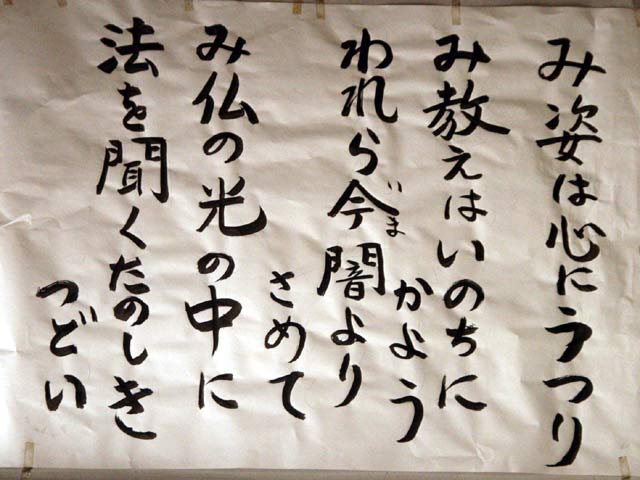 み姿は心にうつり
み教えはいのちに
かよう
われら今闇より
いま
さめて
み仏の光の中に
法を聞くたのしき
つどい